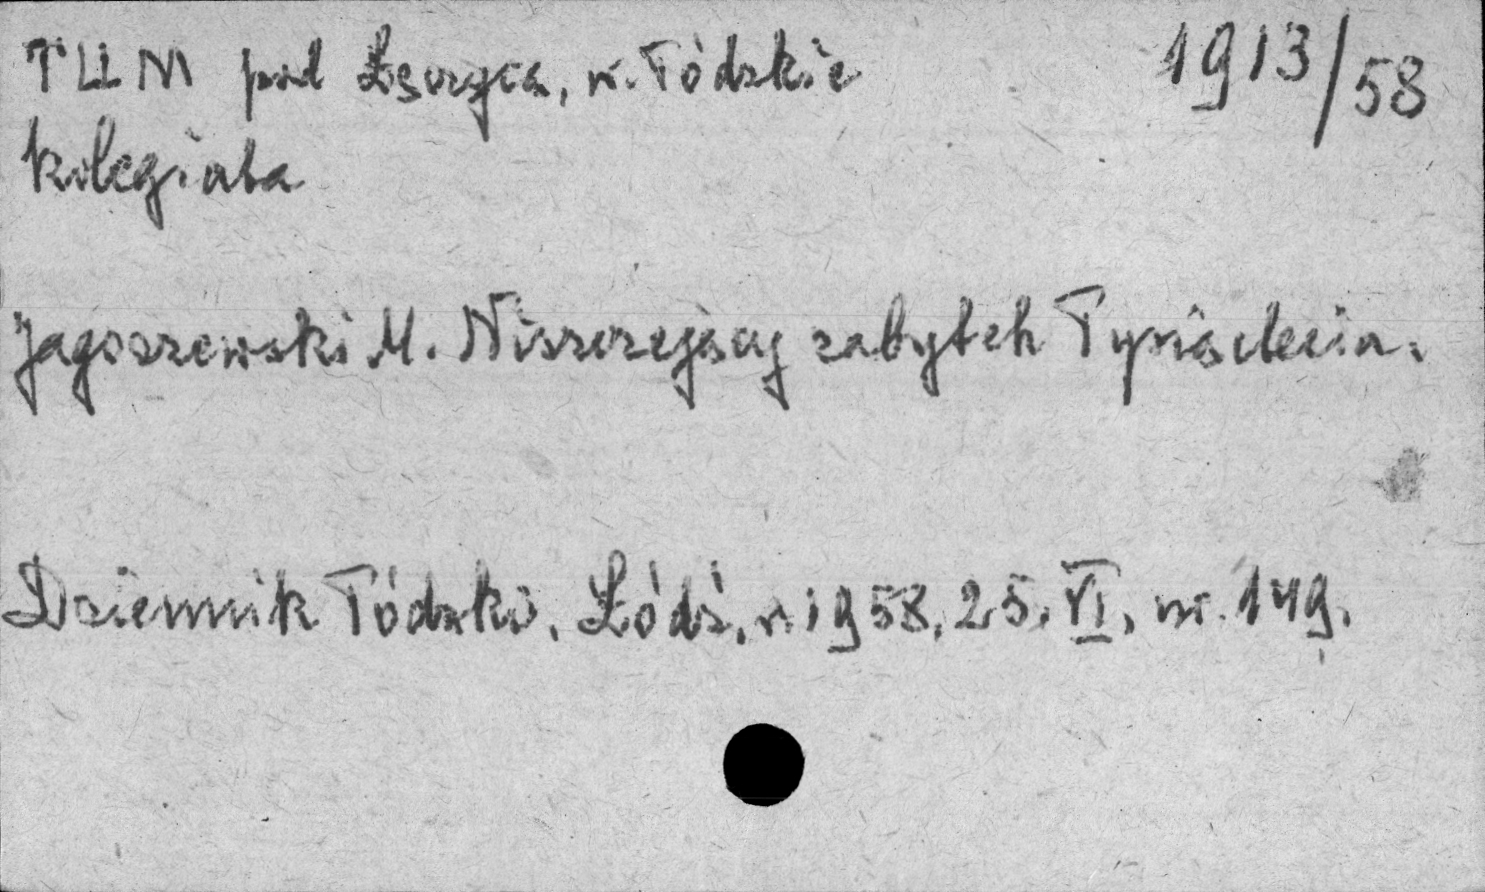 TUM pod Łęczycą, w. łódzkie 1913/58
kolegiata
Jagoszewski M. Niszczejący zabytek Tysiąclecia.
Dziennik Łódzki, Łódź, r. 1958, 25. VI, nr. 149.